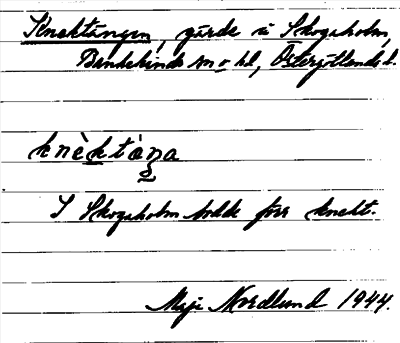 Knektängen, gärde i Skogsholm,
Bankekinds sn o hd, Östergötlands l.
knèktàŋa
I Skogsholm bodde förr knekt.
Maja Nordlund 1944.